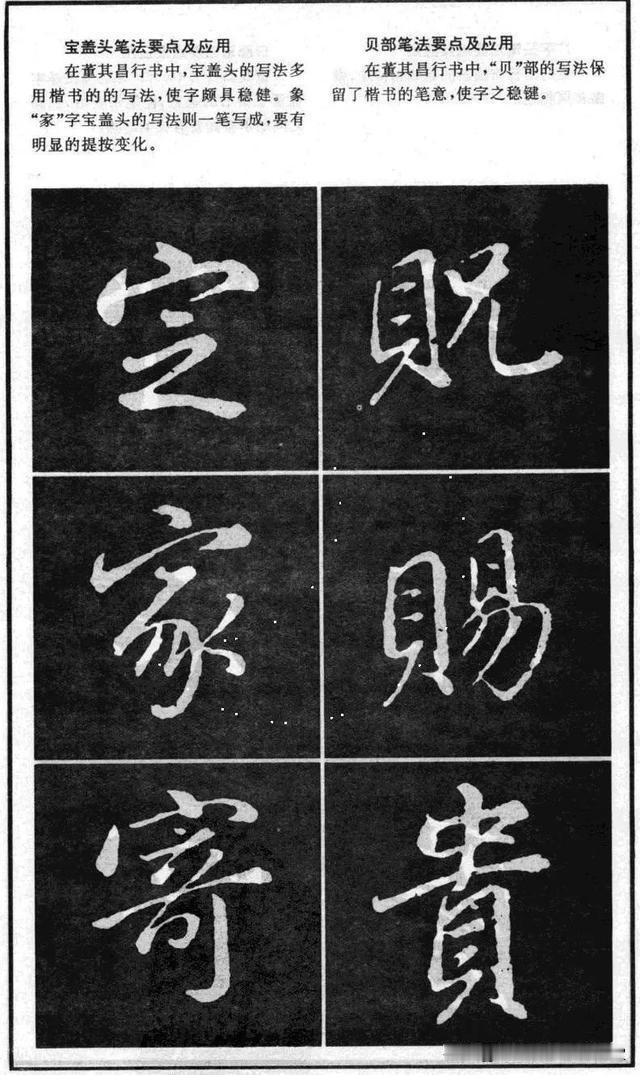 宝盖头笔法要点及应用
在董其昌行书中,宝盖头的写法多
用楷书的的写法,使字颇具稳健。象
“家”字宝盖头的写法则一笔写成,要有
明显的提按变化。
贝部笔法要点及应用
在董其昌行书中,“贝”部的写法保
留了楷书的笔意,使字之稳键。
定
家
寄
贶
賜
貴